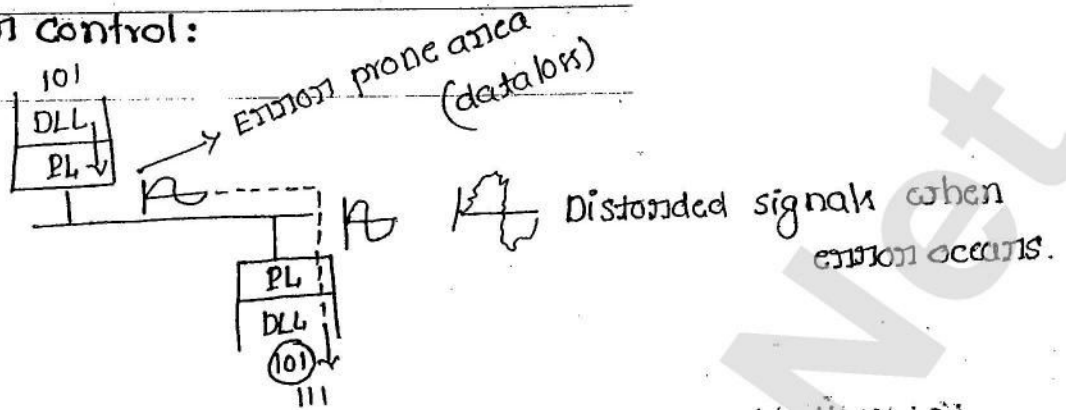 Control:
101
DLL
PL
Error prone area
(data loss)
Distorded signals when
error occurs.
PL
DLL
101
111